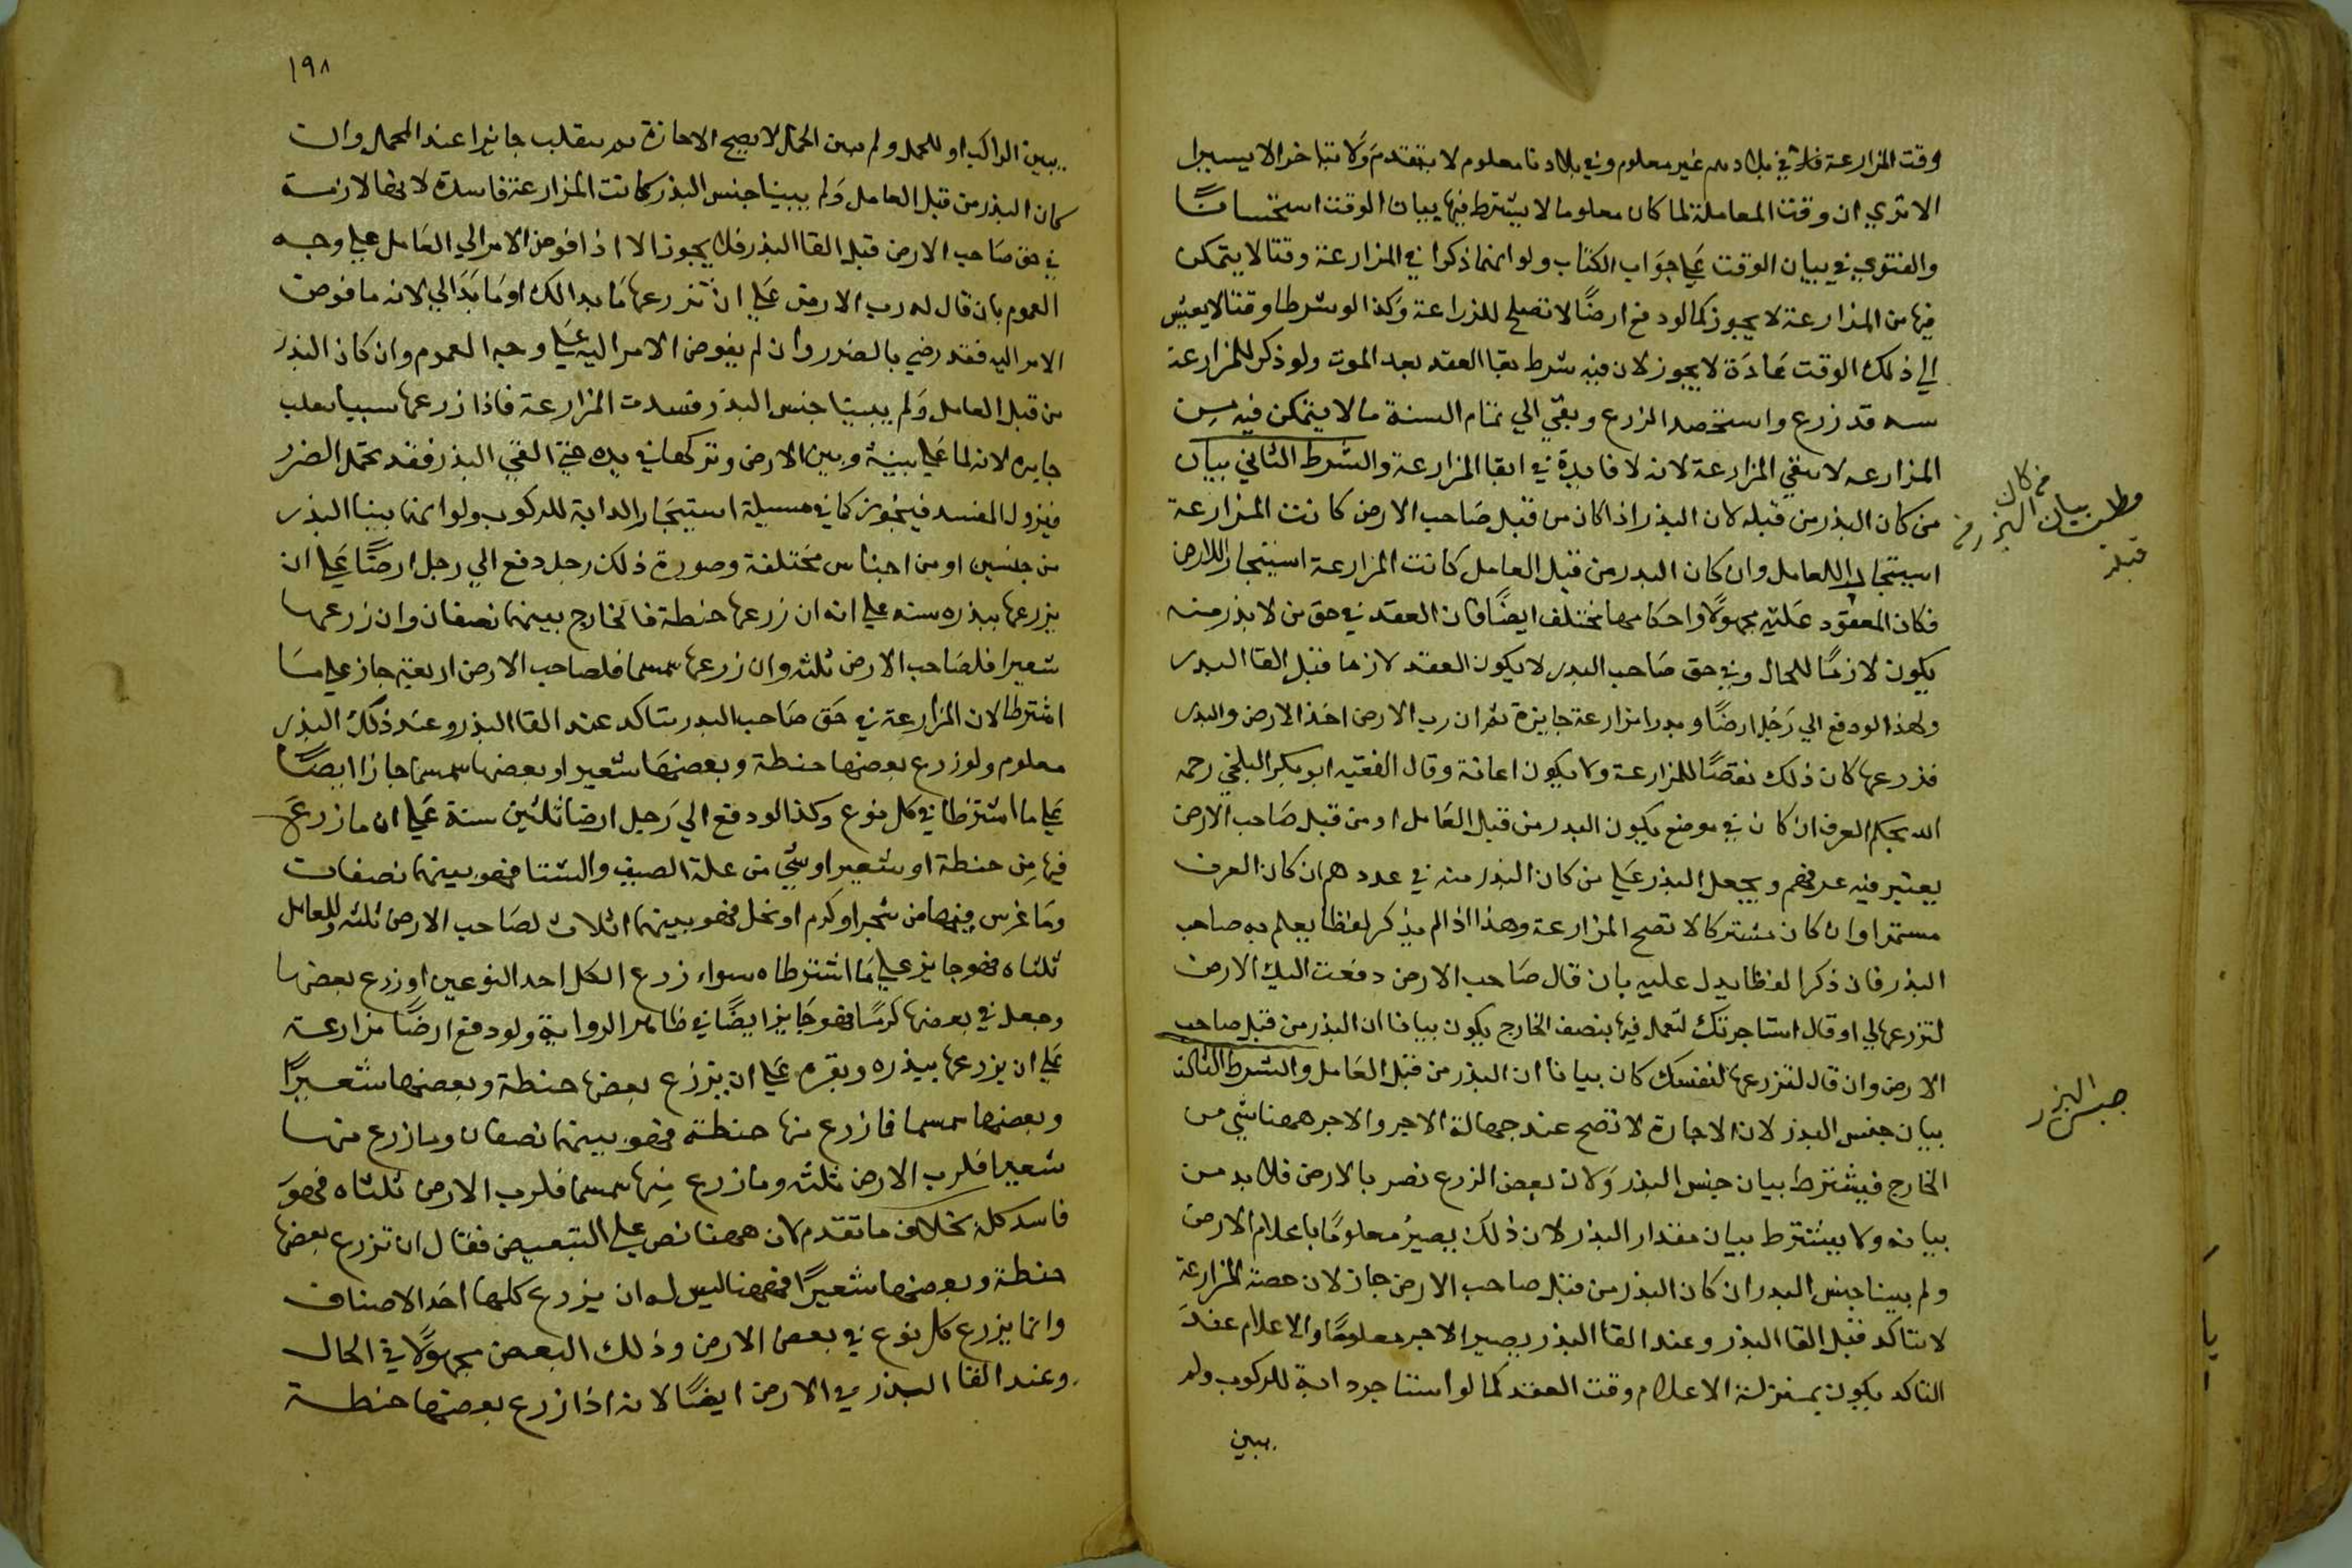 وقت المزارعة فان في بلادهم غير معلوم وفي بلادنا معلوم لا يتقدم ولا يتاخر الا يسيرا
الا تري ان وقت المعاملة لما كان معلوما لا يشترط فيها بيان الوقت استحسانا
والفتوي في بيان الوقت علي جواب الكتاب ولو انهما ذكرا في المزارعة وقتا لا يتمكن
فيها من المزارعة لا يجوز كما لو دفع ارضا لا تصلح للزراعة وكذا لو شرطا وقتا لا يعيش
الي ذلك الوقت عادة لا يجوز لان فيه شرط بقا العقد بعد الموت ولو ذكر للمزارعة
سنه قد زرع واستحصد الزرع وبقي الي تمام السنة ما لا يتمكن فيه من
المزارعه لا تبقي المزارعة لانه لا فايدة في ابقا المزارعة والشرط الثاني بيان
من كان البذر من قبله لان البذر اذا كان من قبل صاحب الارض كانت المزارعة
استيجارا للعامل وان كان البدر من قبل العامل كانت المزارعة استيجارا للارض
فكان المعقود عليه مجهولا واحكامها تختلف ايضا فان العقد في حق من لا بذر منه
يكون لازما للحال وفي حق صاحب البدر لا يكون العقد لازما قبل القا البدر
ولهذا لو دفع الي رجل ارضا وبدرا مزارعة جايزة ثم ان رب الارض اخذ الارض والبدر
فزرعها كان ذلك نقضا للمزارعة ولا يكون اعانة وقال الفقيه ابو بكر البلخي رحمه
الله يحكم العرف ان كان في موضع يكون البدر من قبل العامل او من قبل صاحب الارض
يعتبر فيه عرفهم ويجعل البذر علي من كان البذر منه في عددهم ان كان العرف
مستمرا وان كان مشتركا لا تصح المزارعة وهذا اذا لم يذكر لفظا يعلم به صاحب
البذر فان ذكرا لفظا يدل عليه بان قال صاحب الارض دفعت اليك الارض
لتزرعها لي او قال استاجرتك لتعمل فيها بنصف الخارج يكون بيانا ان البذر من قبل صاحب
الارض وان قال لتزرعها لنفسك كان بيانا ان البذر من قبل العامل والشرط الثالث
بيان جنس البذر لان الاجارة لا تصح عند جهالة الاجر والاجر ههنا شي من
الخارج فيشترط بيان جنس البذر ولان بعض الزرع تضر بالارض فلا بد من
بيانه ولا يشترط بيان مقدار البذر لان ذلك يصير معلوما باعلام الارض
ولم يبينا جنس البدر ان كان البذر من قبل صاحب الارض جاز لان حصة المزارعة
لا تتاكد قبل القا البذر وعند القا البذر يصير الاجر معلوما والاعلام عند
التاكد يكون بمنزلة الاعلام وقت العقد كما لو استاجر دابة للركوب ولم
يبين
مطلب بيان من كان البذر من قبله
جنس البذر
١٩٨
يبين الراكب او للحمل ولم يبين الحمل لا يصح الاجازة ثم ينقلب جائزا عند الحمل وان
كان البذر من قبل العامل ولم يبينا جنس البذر كانت المزارعة فاسدة لانها لازمة
في حق صاحب الارض قبل القا البذر فلا يجوز الا اذا فوض الامر الي العامل علي وجه
العموم بان قال له رب الارض علي ان تزرعها ما بدا لك او ما بدا لي لانه ما فوض
الامر اليه فقد رضي بالضرر وان لم يفوض الامر اليه علي وجه العموم وان كان البذر
من قبل العامل ولم يبينا جنس البذر فسدت المزارعة فاذا زرعها سببا تنقلب
جايزه لانه لما خلي بينه وبين الارض وتركها في يده حتي القي البذر فقد تحمل الضرر
فيزول المفسد فيجوز كما في مسيلة استيجار الدابة للركوب ولو انهما بينا البذر
من جنسين او من اجناس مختلفة وصورة ذلك رجل دفع الي رجل ارضا علي ان
يزرعها ببذره سنه علي انه ان زرعها حنطة فالخارج بينهما نصفان وان زرعها
شعيرا فلصاحب الارض ثلثه وان زرعها سمسما فلصاحب الارض اربعة جاز علي ما
اشترطا لان المزارعة في حق صاحب البدر تتاكد عند القا البذر وعند ذلك البذر
معلوم ولو زرع بعضها حنطة وبعضها شعيرا وبعضها سمسما جاز ايضا
علي ما اشترطا في كل نوع وكذا لو دفع الي رجل ارضا ثلثين سنة علي ان ما زرع
فيها من حنطة او شعير او شي من غلة الصيف والشتا فهو بينهما نصفان
وما غرس فيها من شجر او كرم او نخل فهو بينهما اثلاث لصاحب الارض ثلثه وللعامل
ثلثاه فهو جايز علي ما اشترطاه سواء زرع الكل احد النوعين او زرع بعضها
وجعل في بعضها كرما فهو جايز ايضا في ظاهر الرواية ولو دفع ارضا مزارعة
علي ان يزرعها ببذره وبقره علي ان يزرع بعضها حنطة وبعضها شعيرا
وبعضها سمسما فما زرع منها حنطة فهو بينهما نصفان وما زرع منها
شعيرا فلرب الارض ثلثه وما زرع منها سمسما فلرب الارض ثلثاه فهو
فاسد كله بخلاف ما تقدم لان ههنا نص علي التبعيض فقال ان تزرع بعضها
حنطة وبعضها شعيرا فههنا ليس له ان يزرع كلها احد الاصناف
وانما يزرع كل نوع في بعض الارض وذلك البعض مجهولا في الحال
وعند القا البذر في الارض ايضا لانه اذا زرع بعضها حنطة